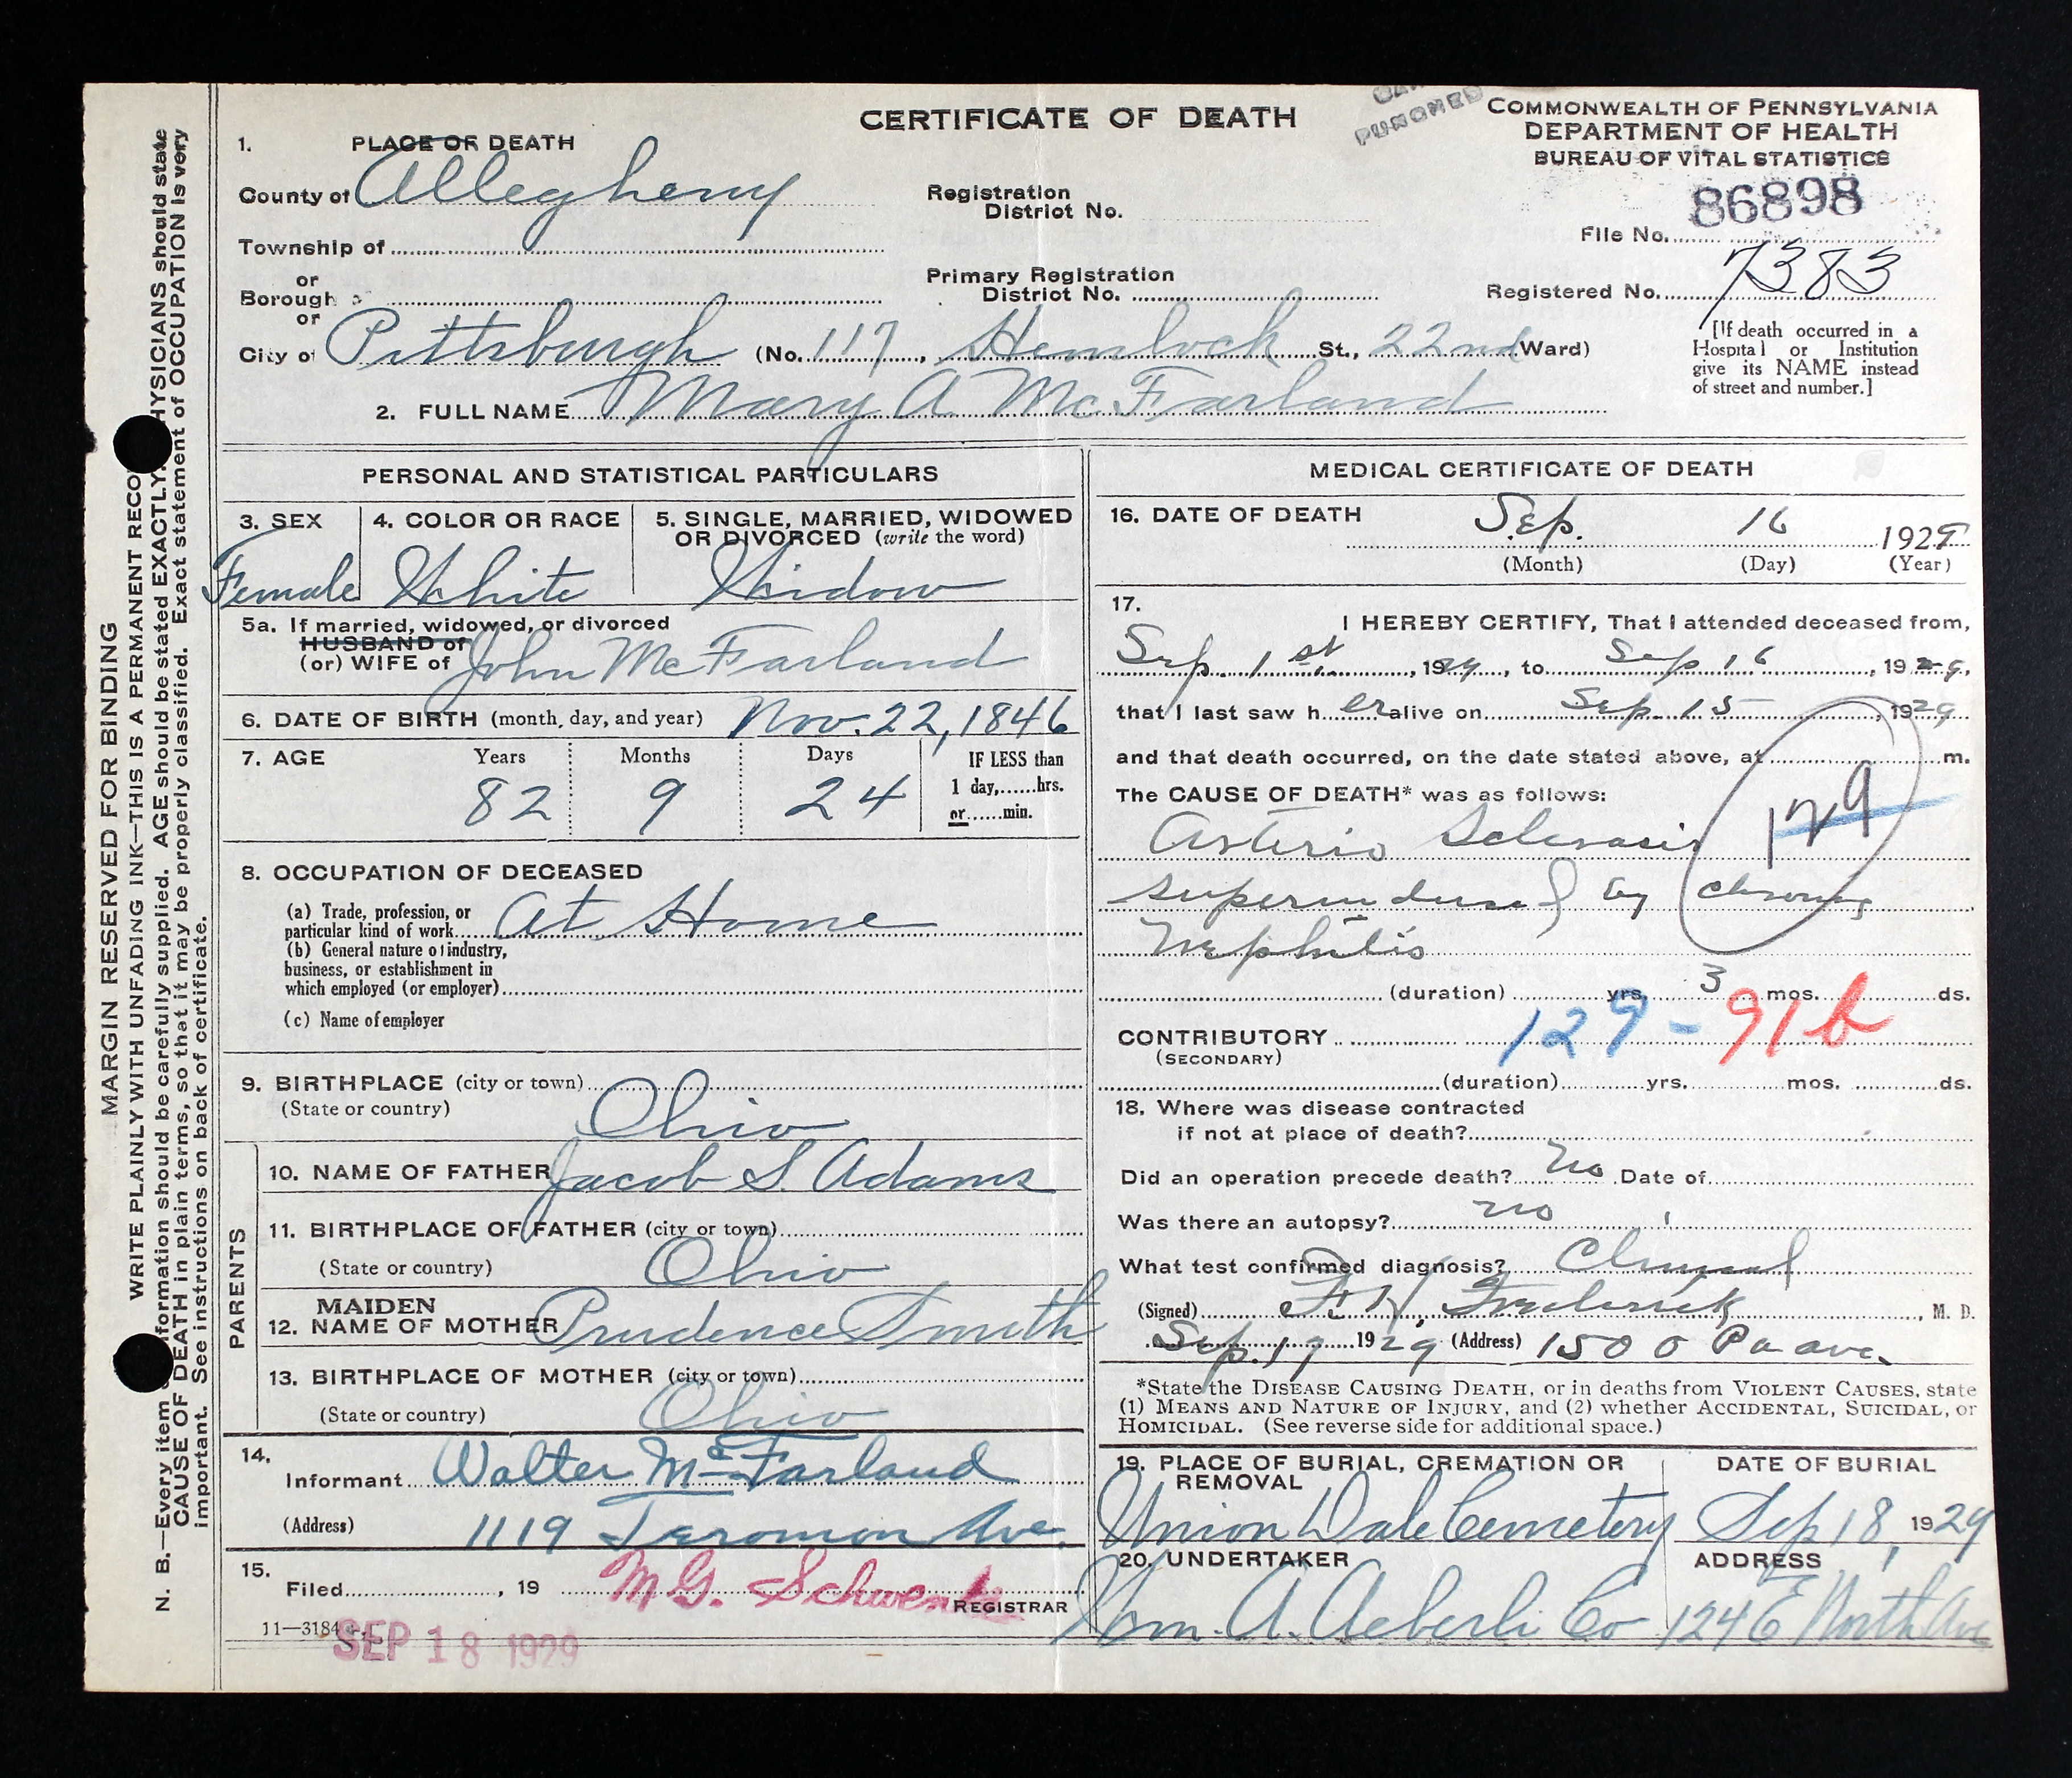 CERTIFICATE OF DEATH
PUNCHED
COMMONWEALTH OF PENNSYLVANIA
DEPARTMENT OF HEALTH
BUREAU OF VITAL STATISTICS
86898
File No.
7383
Registered No.
[If death occurred in a
Hospital or Institution
give its NAME instead
of street and number.]
1. PLACE OF DEATH
County of Allegheny
Registration
District No.
Township of
or
Borough
or
Primary Registration
District No.
City of Pittsburgh (No. 117, Hemlock St., 22nd Ward)
2. FULL NAME Mary A McFarland
PERSONAL AND STATISTICAL PARTICULARS
3. SEX
Female
4. COLOR OR RACE
White
5. SINGLE, MARRIED, WIDOWED
OR DIVORCED (write the word)
Widow
5a. If married, widowed, or divorced
HUSBAND of
(or) WIFE of John McFarland
6. DATE OF BIRTH (month, day, and year) Nov. 22, 1846
7. AGE Years Months Days IF LESS than
82 9 24
1 day,......hrs.
or......min.
8. OCCUPATION OF DECEASED
(a) Trade, profession, or
particular kind of work At Home
(b) General nature of industry,
business, or establishment in
which employed (or employer)
(c) Name of employer
9. BIRTHPLACE (city or town)
(State or country) Ohio
PARENTS
10. NAME OF FATHER Jacob S. Adams
11. BIRTHPLACE OF FATHER (city or town)
(State or country) Ohio
12. MAIDEN
NAME OF MOTHER Prudence Smith
13. BIRTHPLACE OF MOTHER (city or town)
(State or country) Ohio
14.
Informant Walter McFarland
(Address) 1119 Ave.
15.
Filed, 19 M G. Schwenk
REGISTRAR
11—3184
SEP 18 1929
MEDICAL CERTIFICATE OF DEATH
16. DATE OF DEATH Sep. 16 1929
(Month) (Day) (Year)
17.
I HEREBY CERTIFY, That I attended deceased from,
Sep. 1st, 1929, to Sep 16, 1929,
that I last saw her alive on Sep. 15, 1929
and that death occurred, on the date stated above, at m.
The CAUSE OF DEATH* was as follows:
129
Arterio Sclerosis
superinduced by chronic
Nephritis
(duration) yrs. 3 mos. ds.
129 - 91b
CONTRIBUTORY
(SECONDARY)
(duration) yrs. mos. ds.
18. Where was disease contracted
if not at place of death?
Did an operation precede death? no Date of
Was there an autopsy? no
What test confirmed diagnosis? Clinical
(Signed) Frederick, M. D.
Sep. 17 1929 (Address) 1500 Pa ave.
*State the DISEASE CAUSING DEATH, or in deaths from VIOLENT CAUSES, state
(1) MEANS AND NATURE OF INJURY, and (2) whether ACCIDENTAL, SUICIDAL, or
HOMICIDAL. (See reverse side for additional space.)
19. PLACE OF BURIAL, CREMATION OR
REMOVAL
Union Dale Cemetery
DATE OF BURIAL
Sep 18, 1929
20. UNDERTAKER
Wm. A. Aeberli Co
ADDRESS
124 E North Ave
MARGIN RESERVED FOR BINDING
WRITE PLAINLY WITH UNFADING INK—THIS IS A PERMANENT RECO
N. B.—Every item formation should be carefully supplied. AGE should be stated EXACTLY. PHYSICIANS should state
CAUSE OF DEATH in plain terms, so that it may be properly classified. Exact statement of OCCUPATION is very
important. See instructions on back of certificate.